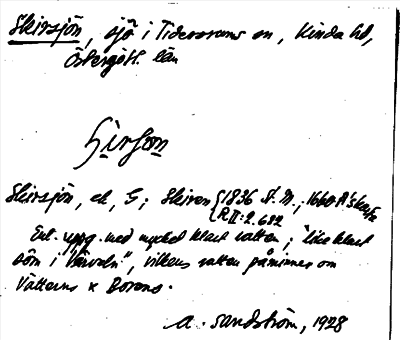 Skirsjön, sjö i Tidersrums sn, Kinda hd,
Östergötl. län
Skirsjön, ek, G; Skiren {1836 St. M.; 1660
R II: 2.682
Enl. uppg. med mycket klart vatten; "lika klart
som i", vilkens vatten påminner om
Vätterns x Borens.
A. Sandström, 1928